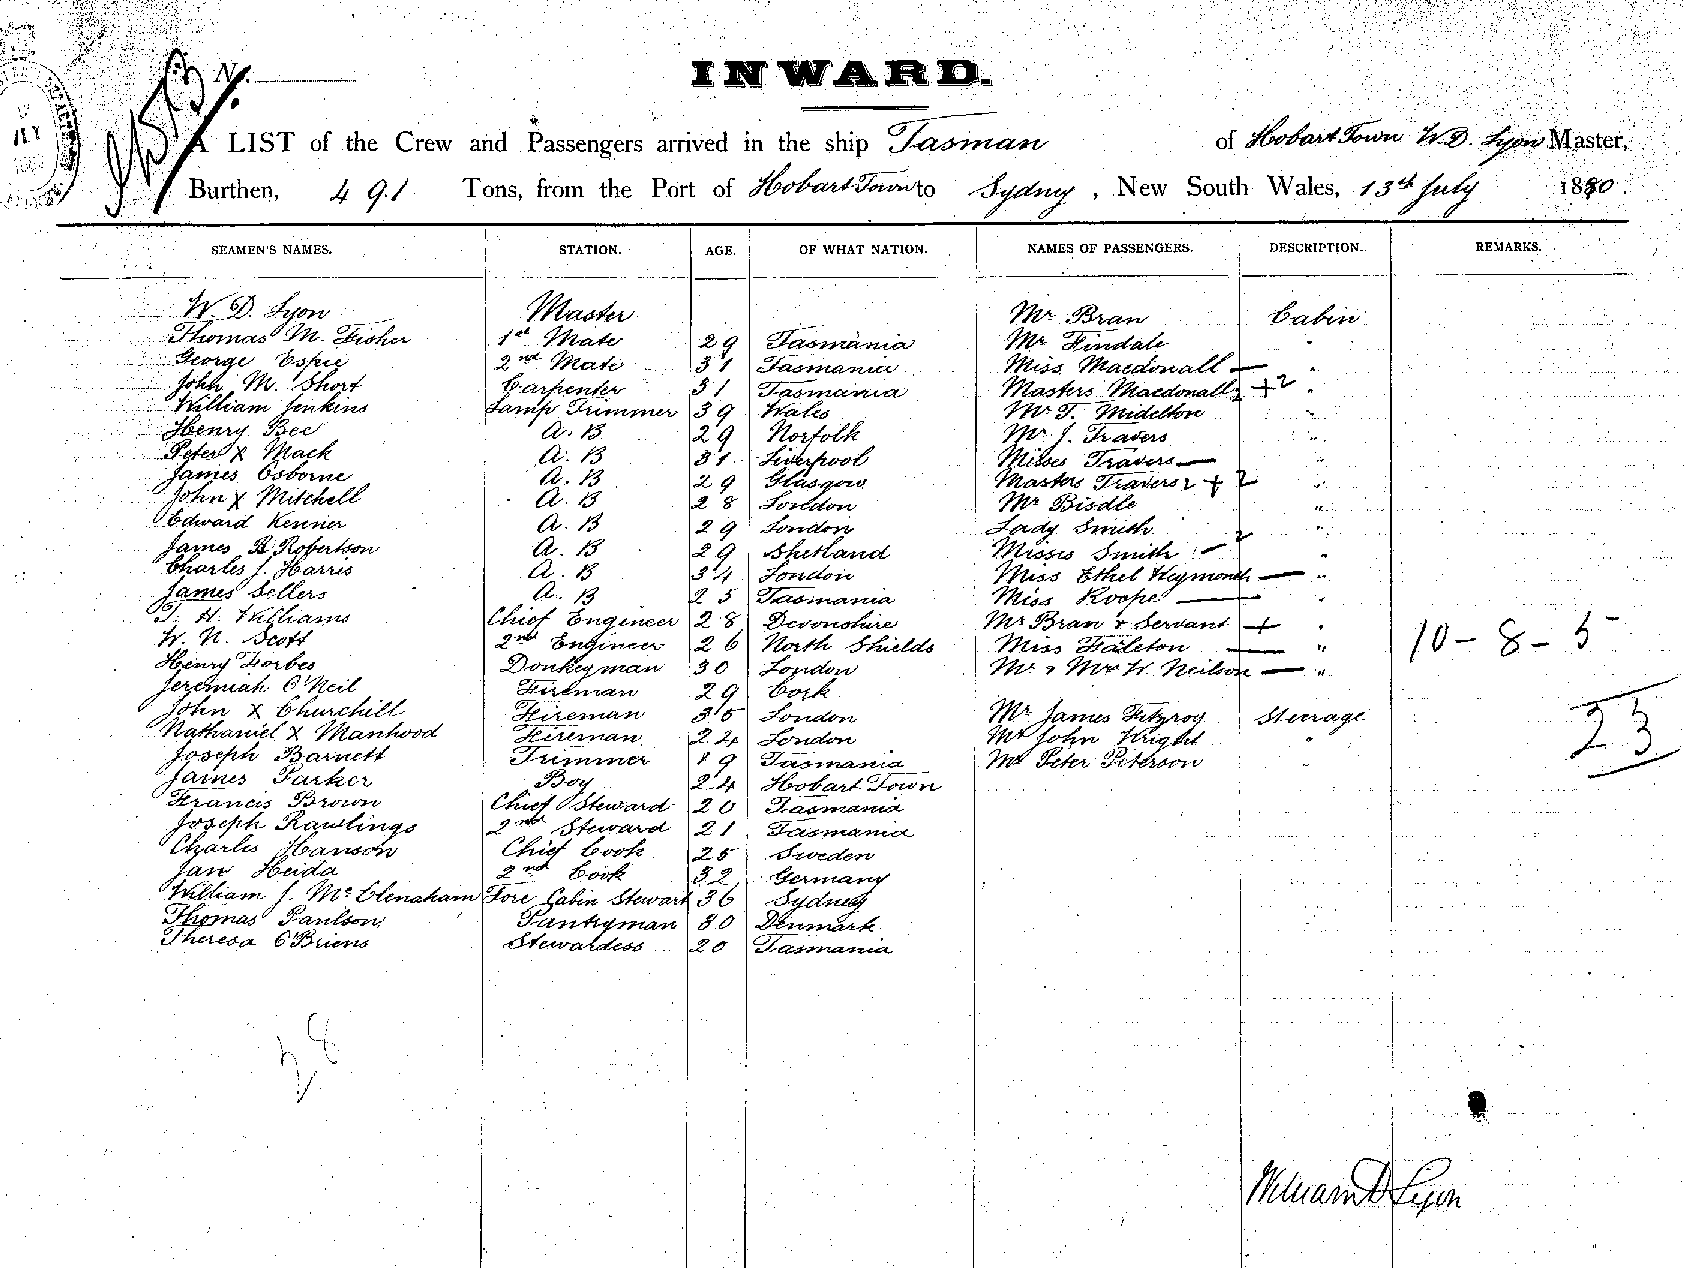 N.
INWARD.
A LIST of the Crew and Passengers arrived in the ship Tasman of Hobart Town W. D. Lyon Master,
Burthen, 491 Tons, from the Port of Hobart Town to Sydney, New South Wales, 13th July 1880.
SEAMEN'S NAMES. STATION. AGE. OF WHAT NATION. NAMES OF PASSENGERS. DESCRIPTION. REMARKS.
W. D. Lyon Master Mr Bran Cabin
Thomas M. Fisher 1st Mate 29 Tasmania Mr Findale "
George Espie 2nd Mate 31 Tasmania Miss Macdonall — "
John M. Short Carpenter 31 Tasmania Masters Macdonall 2 + 2 "
William Jenkins Lamp Trimmer 39 Wales Mr T. Midelton "
Henry Bee A. B 29 Norfolk Mr J. Travers "
Peter X Mack A. B 31 Liverpool Misses Travers — "
James Osborne A. B 29 Glasgow Masters Travers 2 + 2 "
John X Mitchell A. B 28 London Mr Bisdle "
Edward Kenner A. B 29 London Lady Smith "
James R Robertson A. B 29 Shetland Misses Smith — 2 "
Charles J. Harris A. B 34 London Miss Ethel — "
James Sellers A. B 25 Tasmania Miss Roope — "
T. H. Williams Chief Engineer 28 Devonshire Mr Bran & Servant + "
W. N. Scott 2nd Engineer 26 North Shields Miss — " 10 - 8 - 5
Henry Forbes Donkeyman 30 London Mr & Mrs W. Neilson — "
Jeremiah O'Neil Fireman 29 Cork
John X Churchill Fireman 35 London Mr James Fitzroy Steerage 23
Nathaniel X Manhood Fireman 24 London Mr John Wright "
Joseph Barnett Trimmer 19 Tasmania Mr Peter Peterson "
James Parker Boy 24 Hobart Town
Francis Brown Chief Steward 20 Tasmania
Joseph Rawlings 2nd Steward 21 Tasmania
Charles Hanson Chief Cook 25 Sweden
Jan Heida 2nd Cook 32 Germany
William J. McClenaham Fore Cabin Stewart 36 Sydney
Thomas Paulson Pantryman 30 Denmark
Theresa O'Briens Stewardess 20 Tasmania
28
William D Lyon